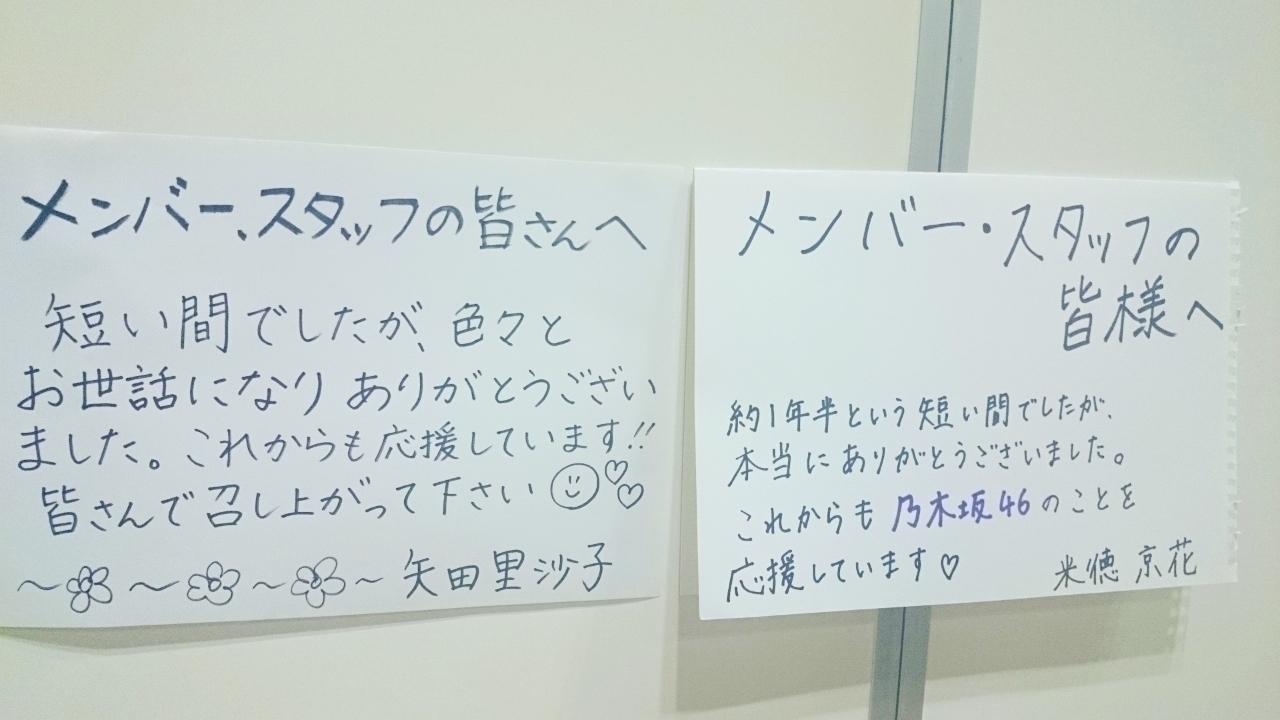 メンバー、スタッフの皆さんへ
短い間でしたが、色々と
お世話になり ありがとうござい
ました。これからも応援しています!!
皆さんで召し上がって下さい
〜 〜 〜 〜 矢田里沙子
メンバー・スタッフの
皆様へ
約1年半という短い間でしたが、
本当にありがとうございました。
これからも 乃木坂46のことを
応援しています♡
米徳 京花